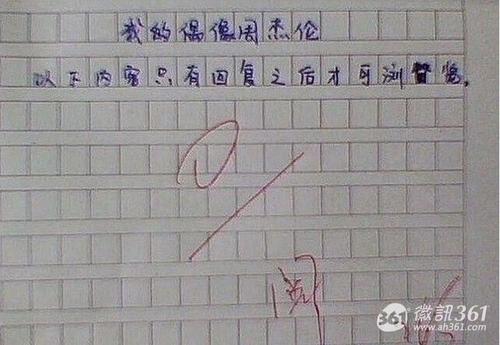 我的偶像周杰伦
以下内容只有回复之后才可浏览。
0
阅
361 微訊361
www.ah361.com